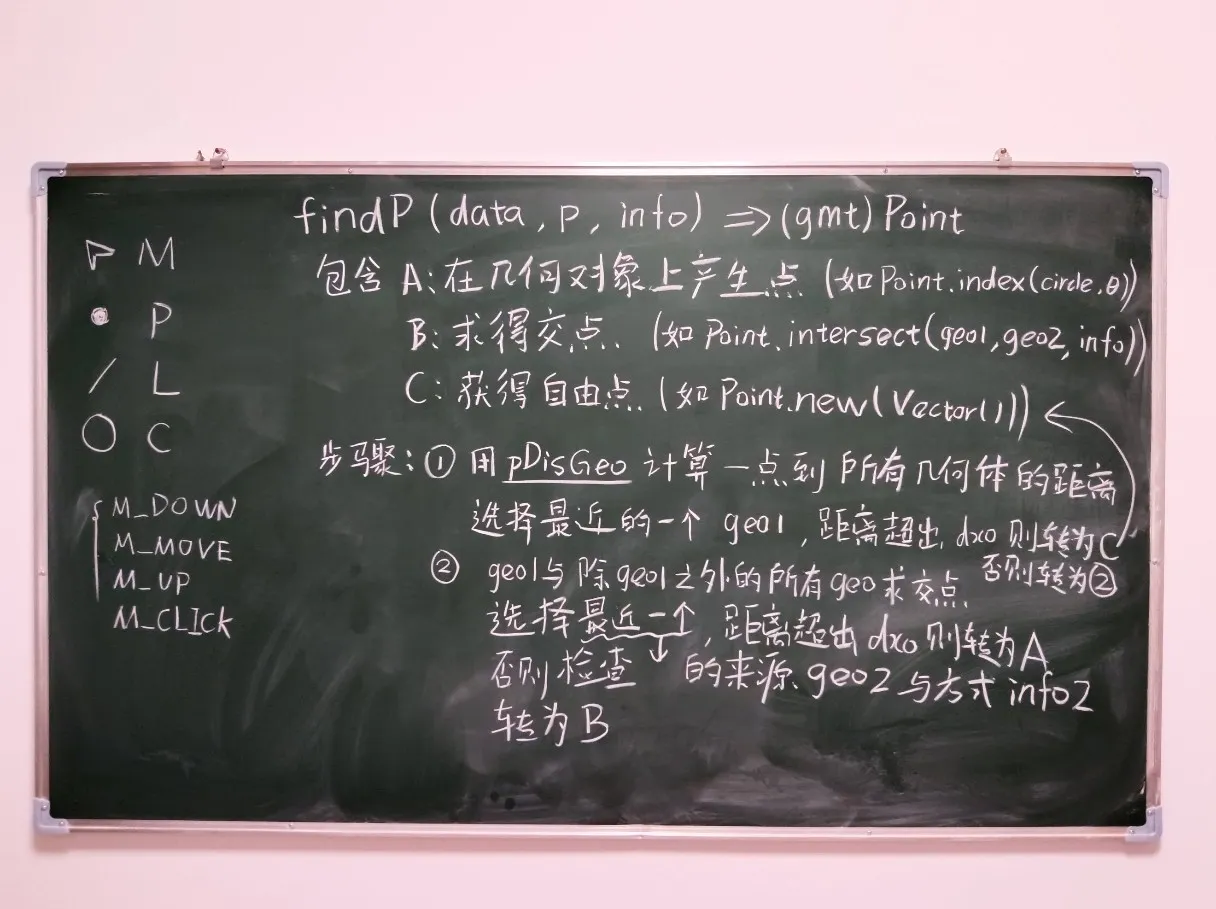 findP (data, p, info) => (gmt) Point
包含 A: 在几何对象上产生点 (如 Point.index(circle,θ))
B: 求得交点 (如 Point.intersect(geo1, geo2, info))
C: 获得自由点 (如 Point.new(Vector()))
步骤: ① 用 pDisGeo 计算一点到所有几何体的距离
选择最近的一个 geo1, 距离超出 dxo 则转为C
否则转为②
② geo1与除geo1之外的所有geo求交点
选择最近一个, 距离超出 dxo 则转为A
否则检查 ↓ 的来源 geo2 与方式 info2
转为B
M
P
L
C
M_DOWN
M_MOVE
M_UP
M_CLICK